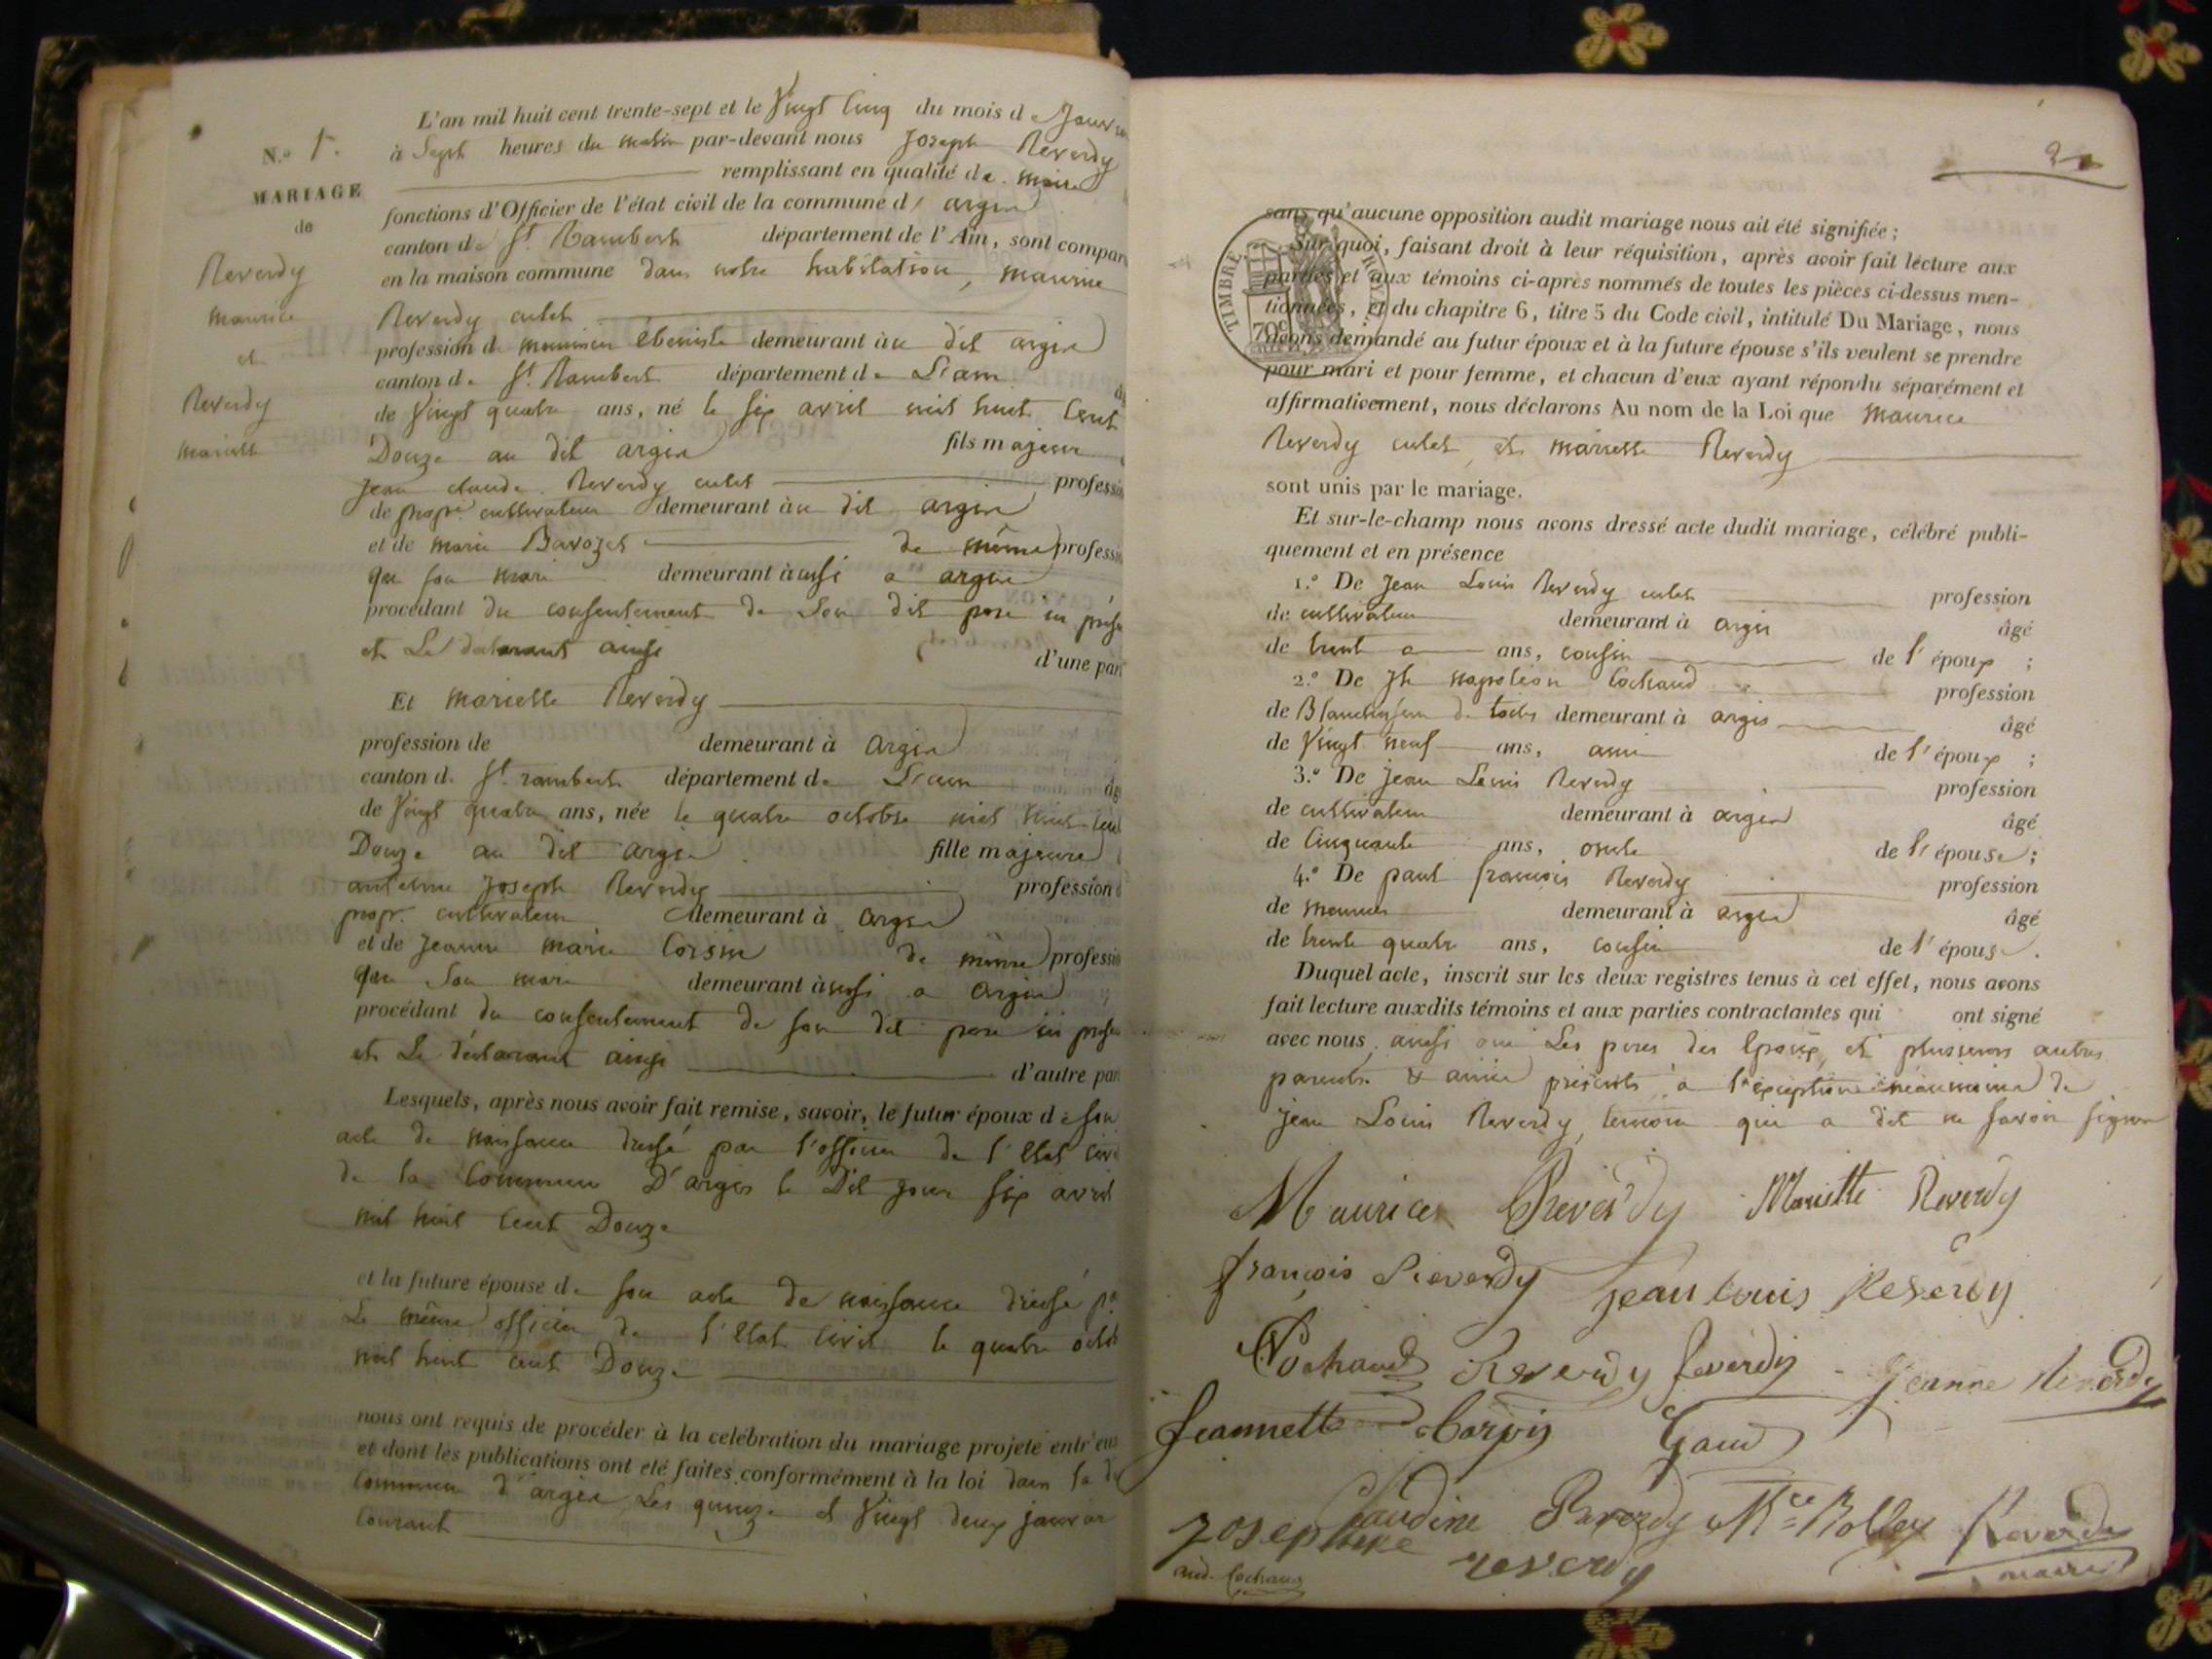 N.o 1.
MARIAGE
de
Reverdy
maurice
et
Reverdy
mariette
L'an mil huit cent trente-sept et le Vingt Cinq du mois de Janvier
à Sept heures du matin par-devant nous Joseph Reverdy
remplissant en qualité de maire
fonctions d'Officier de l'état civil de la commune d' argis
canton de St. Rambert département de l'Ain, sont compar
en la maison commune dans notre habitation, maurice
Reverdy culet
profession de menuisier ébeniste demeurant au dit argis
canton de St. Rambert département de L'ain
de Vingt quatre ans, né le six avril mil huit Cent
Douze au dit argis fils majeur
Jean claude Reverdy culet professi
de propre. cultivateur demeurant au dit argis
et de marie Bavozet de même professi
que son mari demeurant aussi a argis
procédant du consentement de Son dit pere ici prése
et Le déclarant ainsi d'une par
Et mariette Reverdy
profession de demeurant à argis
canton de St. rambert département de L'ain âg
de Vingt quatre ans, née le quatre octobre mil huit Cent
Douze au dit argis fille majeure
antelme Joseph Reverdy profession d
propr. cultivateur demeurant à argis
et de Jeanne marie Corsin de même professi
que Son mari demeurant aussi a argis
procédant du consentement de son dit pere ici prése
et Le déclarant ainsi d'autre par
Lesquels, après nous avoir fait remise, savoir, le futur époux de son
acte de naissance dressé par l'officier de l'Etat civi
de la Commune D'argis le Dit jour six avril
mil huit Cent Douze
et la future épouse de son acte de naissance dressé pr
Le même officier de l'Etat Civil le quatre octob
mil huit cent Douze
nous ont requis de procéder à la celébration du mariage projeté entr'eux
et dont les publications ont été faites conformément à la loi dans la di
Commune d'argis Les quinze et Vingt deux janvier
Courant
2
TIMBRE ROYAL
70c
sans qu'aucune opposition audit mariage nous ait été signifiée;
Sur quoi, faisant droit à leur réquisition, après avoir fait lecture aux
parties et aux témoins ci-après nommés de toutes les pièces ci-dessus men-
tionnées, et du chapitre 6, titre 5 du Code civil, intitulé Du Mariage, nous
avons demandé au futur époux et à la future épouse s'ils veulent se prendre
pour mari et pour femme, et chacun d'eux ayant répondu séparément et
affirmativement, nous déclarons Au nom de la Loi que Maurice
Reverdy culet et mariette Reverdy
sont unis par le mariage.
Et sur-le-champ nous avons dressé acte dudit mariage, célébré publi-
quement et en présence
1.o De Jean Louis Reverdy culet profession
de cultivateur demeurant à argis âgé
de trente ans, cousin de l'époux ;
2.o De Jh napoléon Cochaud profession
de Blanchisseur de toiles demeurant à argis âgé
de Vingt neuf ans, ami de l'époux ;
3.o De Jean Louis Reverdy profession
de cultivateur demeurant à argis âgé
de Cinquante ans, oncle de l'épouse ;
4.o De paul françois Reverdy profession
de demeurant à argis âgé
de trente quatre ans, cousin de l'épouse.
Duquel acte, inscrit sur les deux registres tenus à cet effet, nous avons
fait lecture auxdits témoins et aux parties contractantes qui ont signé
avec nous ainsi que Les peres des Epoux et plusieurs autres
parents & amis présents, a l'exception néanmoins de
jean Louis Reverdy, temoin qui a dit ne savoir signer
Maurice Reverdy Mariette Reverdy
françois Reverdy jean louis Reverdy
Cochaud Reverdy Reverdy Jeanne Reverdy
Jeannette Corsin Gaud
Claudine Reverdy Mce Bolley Reverdy
Josephine reverdy maire
and. Cochaud